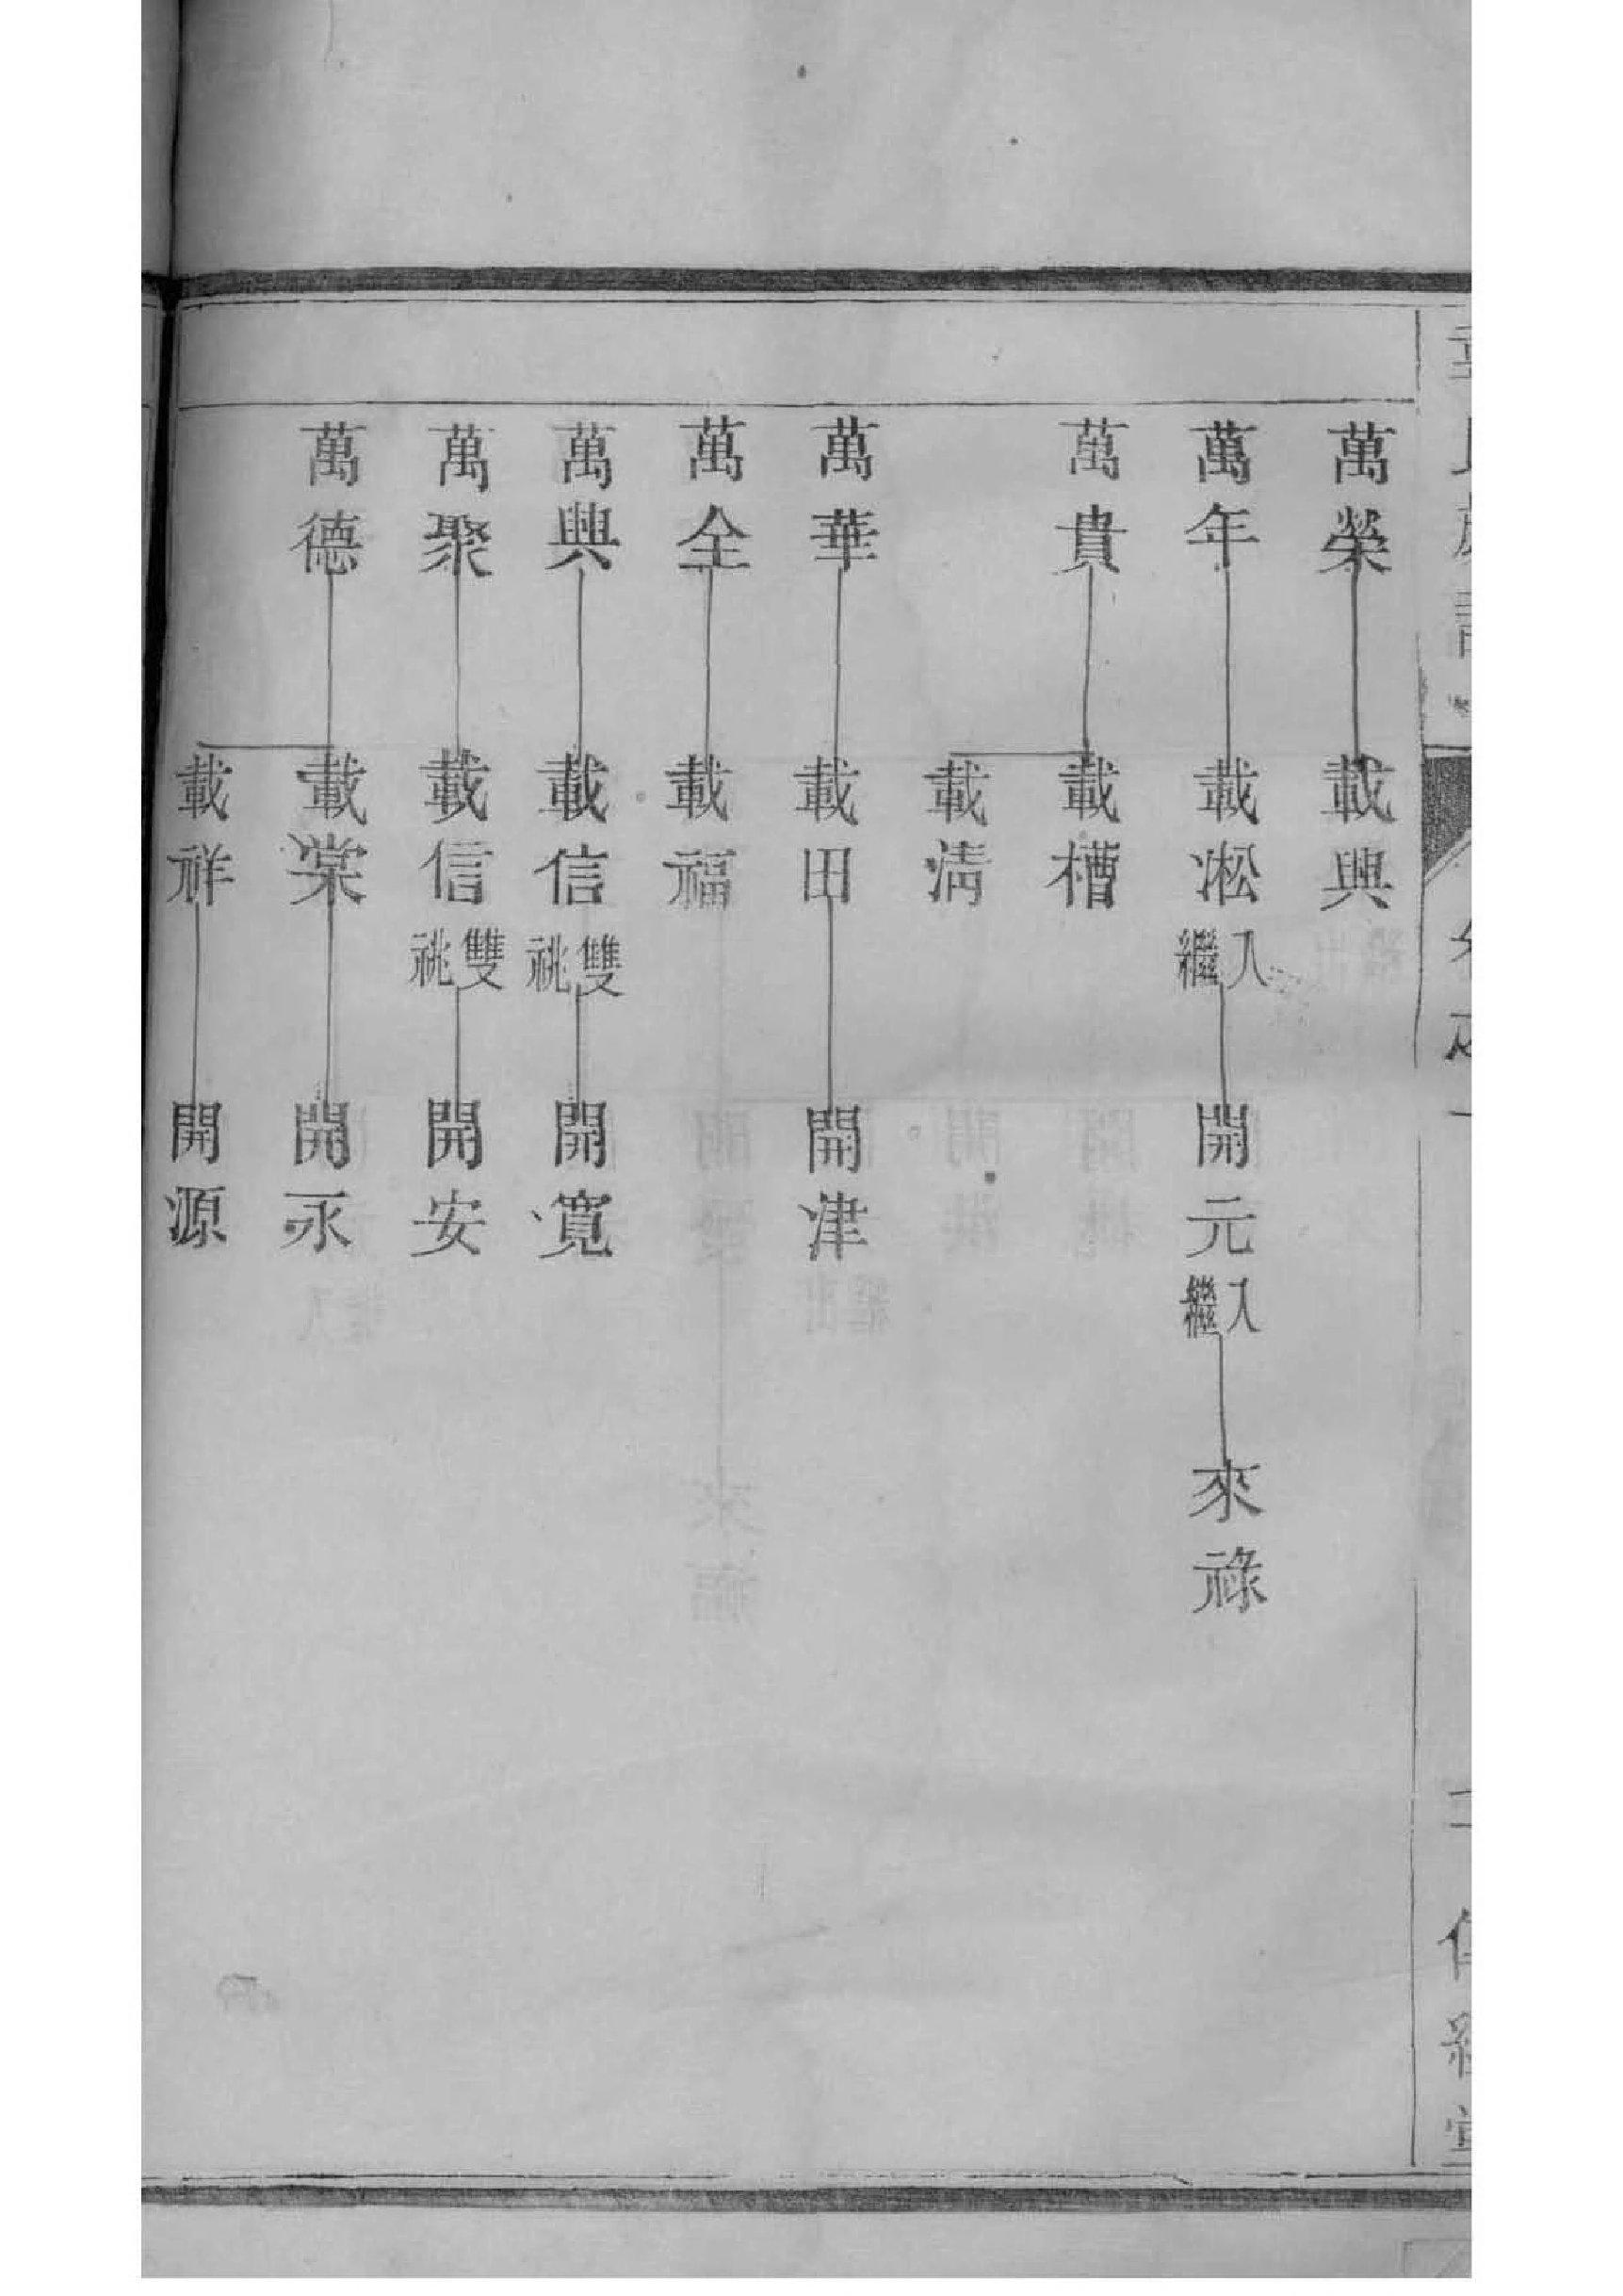 萬榮 載興
萬年 載凇 入繼 開元 入繼 來祿
萬貴 載槽
載清
萬華 載田 開津
萬全 載福
萬興 載信 雙祧 開寬
萬聚 載信 雙祧 開安
萬德 載棠 開永
載祥 開源